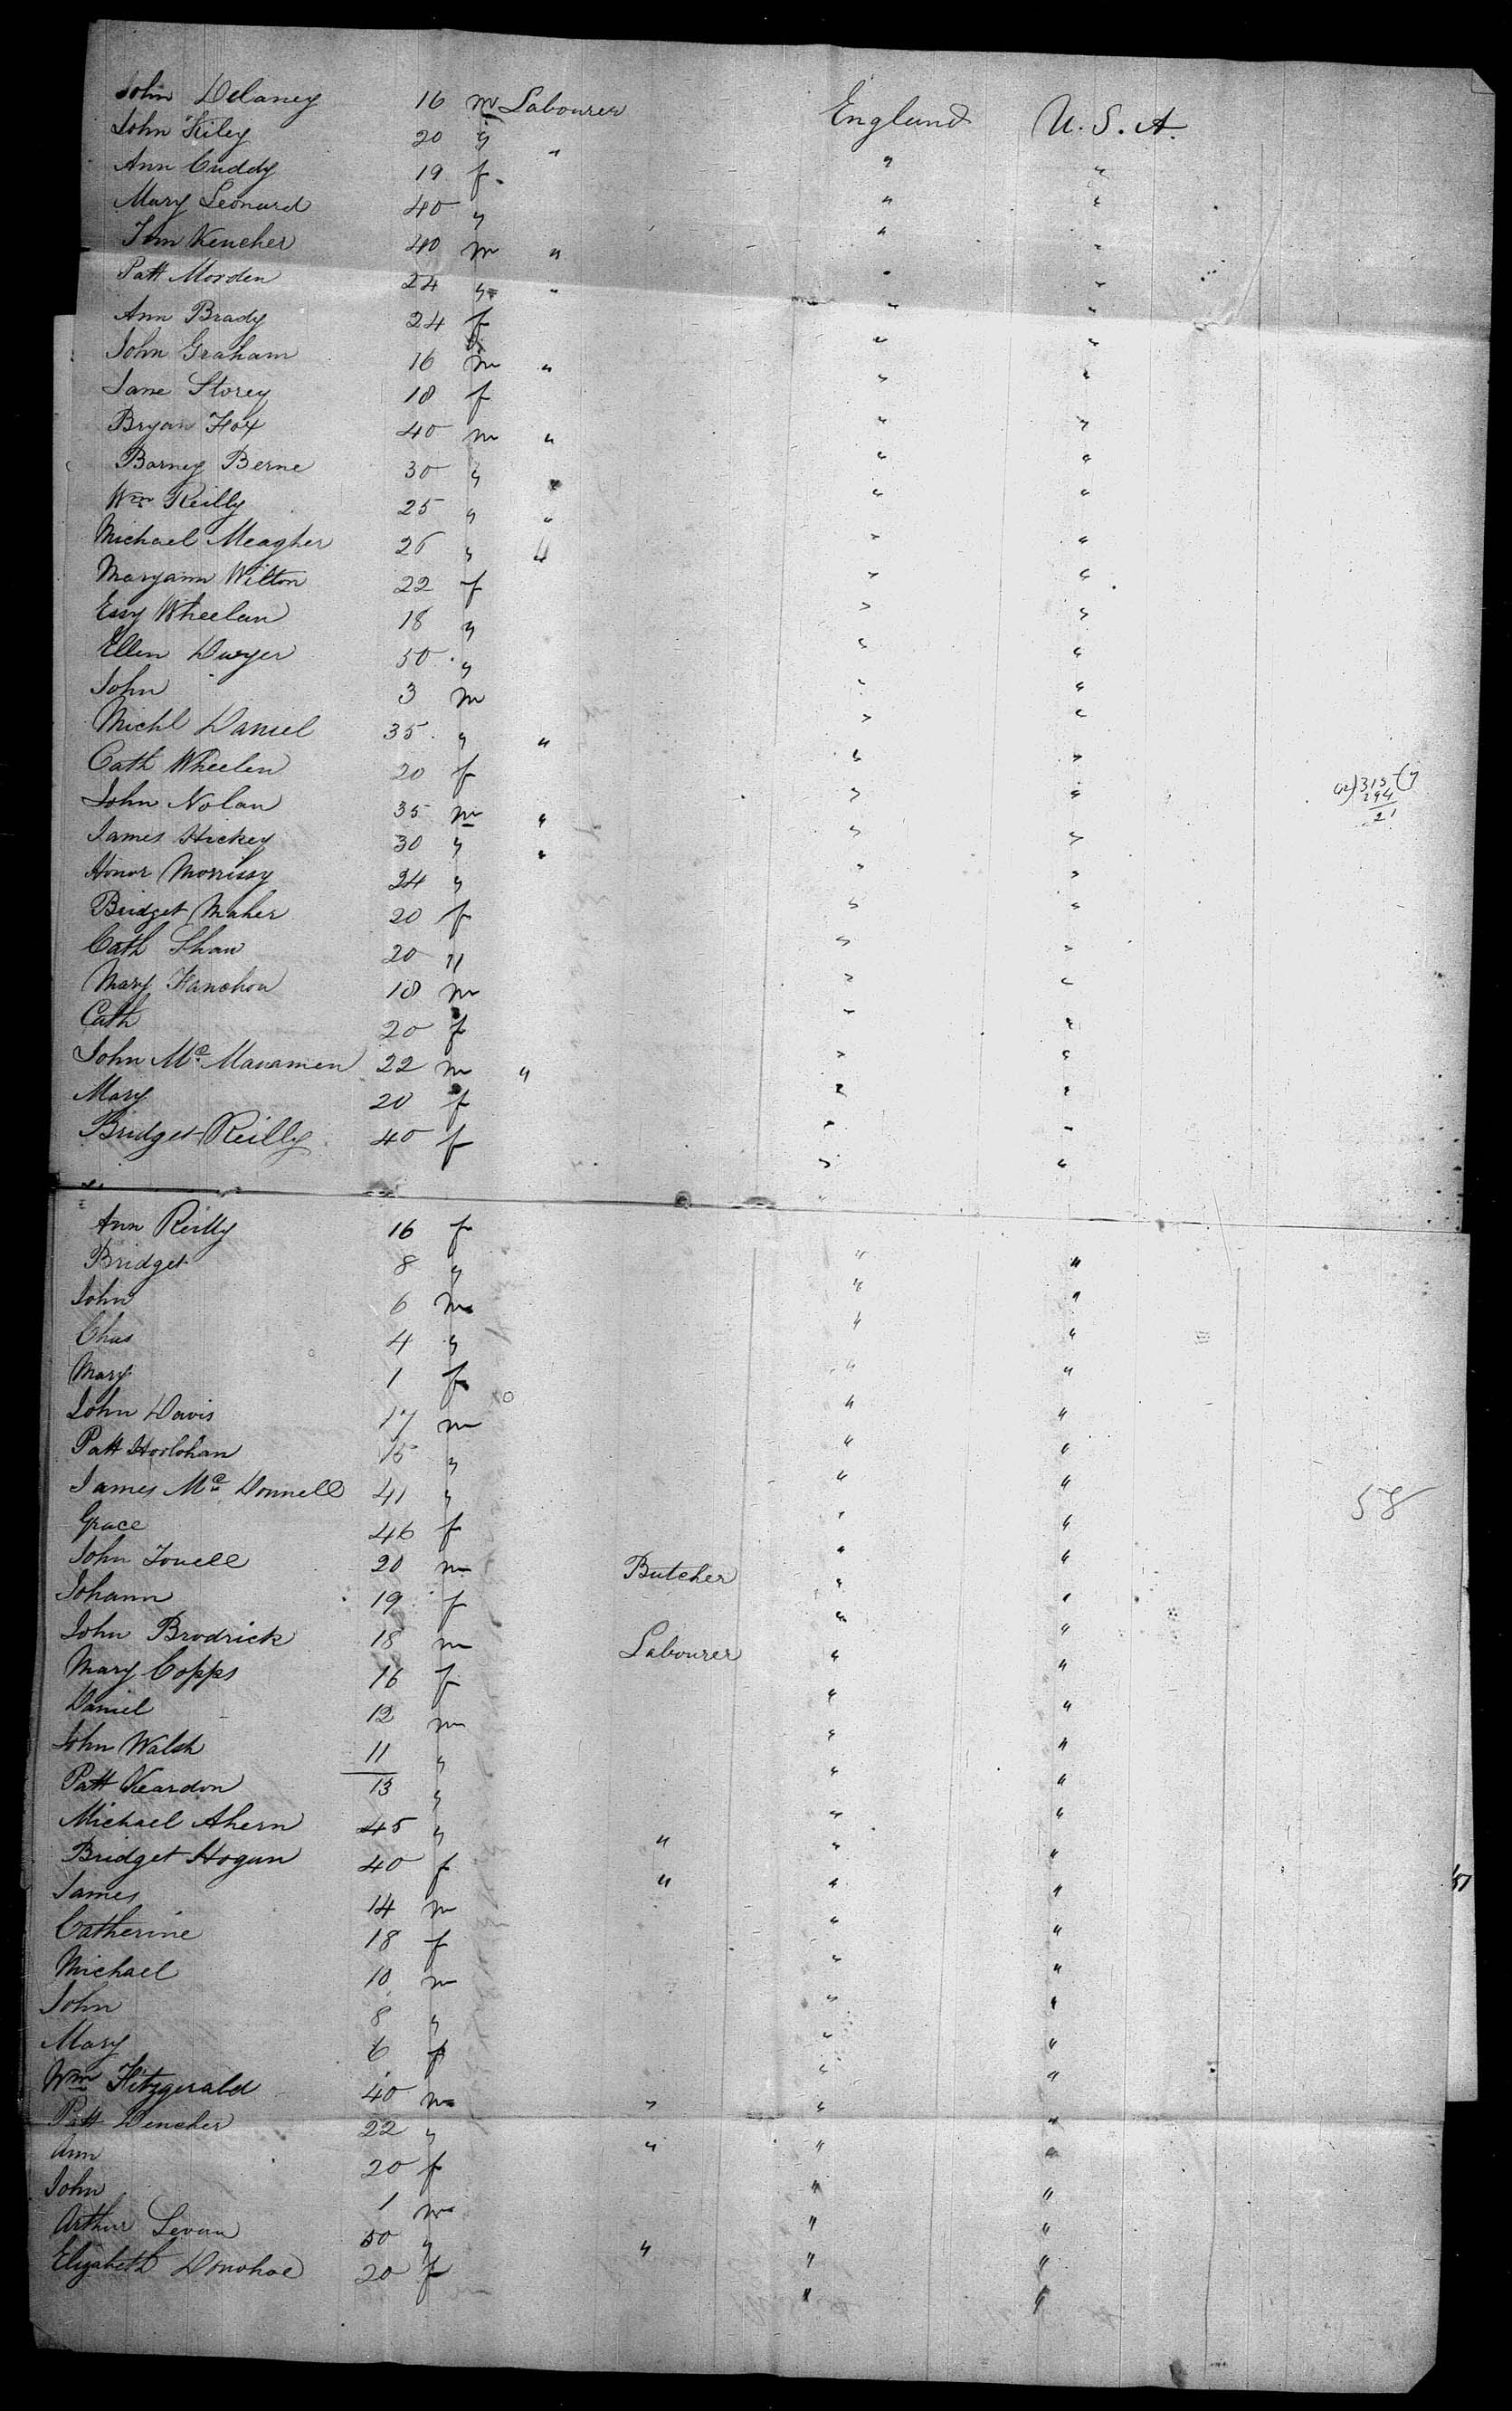 John Delaney 16 m Labourer England U.S.A.
John Kiley 20 " " " "
Ann Cuddy 19 f " "
Mary Leonard 40 " " "
Tom Kencher 40 m " " "
Patt Morden 24 " " " "
Ann Brady 24 f " "
John Graham 16 m " " "
Jane Storey 18 f " "
Bryan Fox 40 m " " "
Barney Berne 30 " " " "
Wm Reilly 25 " " " "
Michael Meagher 26 " " " "
Maryann Wilton 22 f " "
Essy Wheelan 18 " " "
Ellen Dwyer 50 " " "
John 3 m " "
Michl Daniel 35 " " " "
Cath Wheelen 20 f " "
John Nolan 35 m " " "
James Hickey 30 " " " "
Honor Morrissy 24 " " "
Bridget Maher 20 f " "
Cath Shaw 20 " " "
Mary Hanehon 18 m " "
Cath 20 f " "
John Mc Manamen 22 m " " "
Mary 20 f " "
Bridget Reilly 40 f " "
Ann Reilly 16 f " "
Bridget 8 " " "
John 6 m " "
Chas 4 " " "
Mary 1 f " "
John Davis 17 m " "
Patt Horlohan 15 " " "
James Mc Donnell 41 " " "
Grace 46 f " "
John Towell 20 m Butcher " "
Johann 19 f " "
John Brodrick 18 m Labourer " "
Mary Copps 16 f " "
Daniel 12 m " "
John Walsh 11 " " "
Patt Keardon 13 " " "
Michael Ahern 45 " " " "
Bridget Hogan 40 f " " "
James 14 m " "
Catherine 18 f " "
Michael 10 m " "
John 8 " " "
Mary 6 f " "
Wm Fitzgerald 40 m " " "
Patt Dencher 22 " " " "
Ann 20 f " "
John 1 m " "
Arthur Levan 50 " " " "
Elizabeth Donohoe 20 f " "
42)315(7
294
21
58